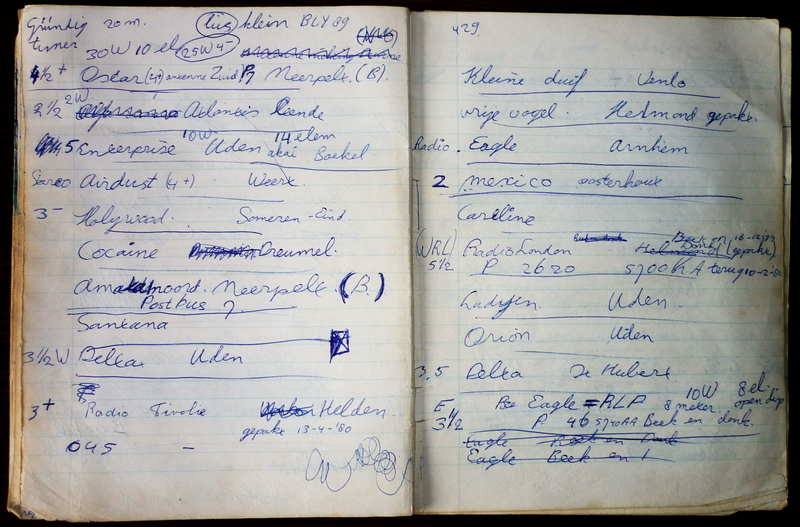 Gründig 20 m. klein BLY 89
tuner 30W 10 el 25W 4-
4 1/2 + Oscar (4+) antenne Zuid Neerpelt. (B).
2 1/2 2W Atlantis Leende
5 Enterprise 10W Uden 14 elem akai Boekel
Stereo Airdust (4+) Weert
3- Hollywood. Someren-Eind
Cocaine Dreumel.
noord. Neerpelt (B.)
Postbus 7.
Santana
3 1/2 W Delta Uden
3+ Radio Tivolie Helden
gepakt 13-4-'80
045 -
429.
Kleine duif Venlo
vrije vogel. Helmond gepakt.
Radio. Eagle Arnhem
2 mexico oosterhout
Caroline
(WRL) Radio London Helmond Beek en Donk (gepakt) 16-12-'79
5 1/2 P 2620 5700KA terug 10-2-80
Uden.
Orion Uden
3.5 Delta
E Eagle = RLP 10W 8 meter 8 el- open dip
3 1/2 P 46 5740AA Beek en donk.
Eagle Beek en Donk
Eagle Beek en